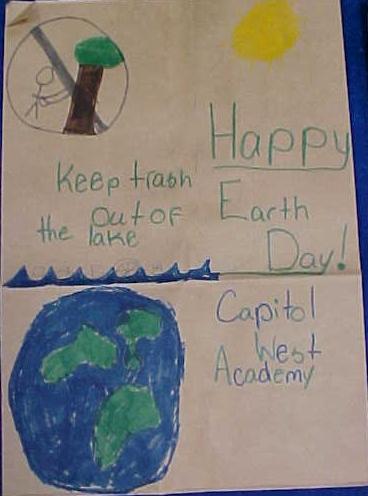 Happy
Earth
Day!
Keep trash
out of
the lake
Capitol
West
Academy